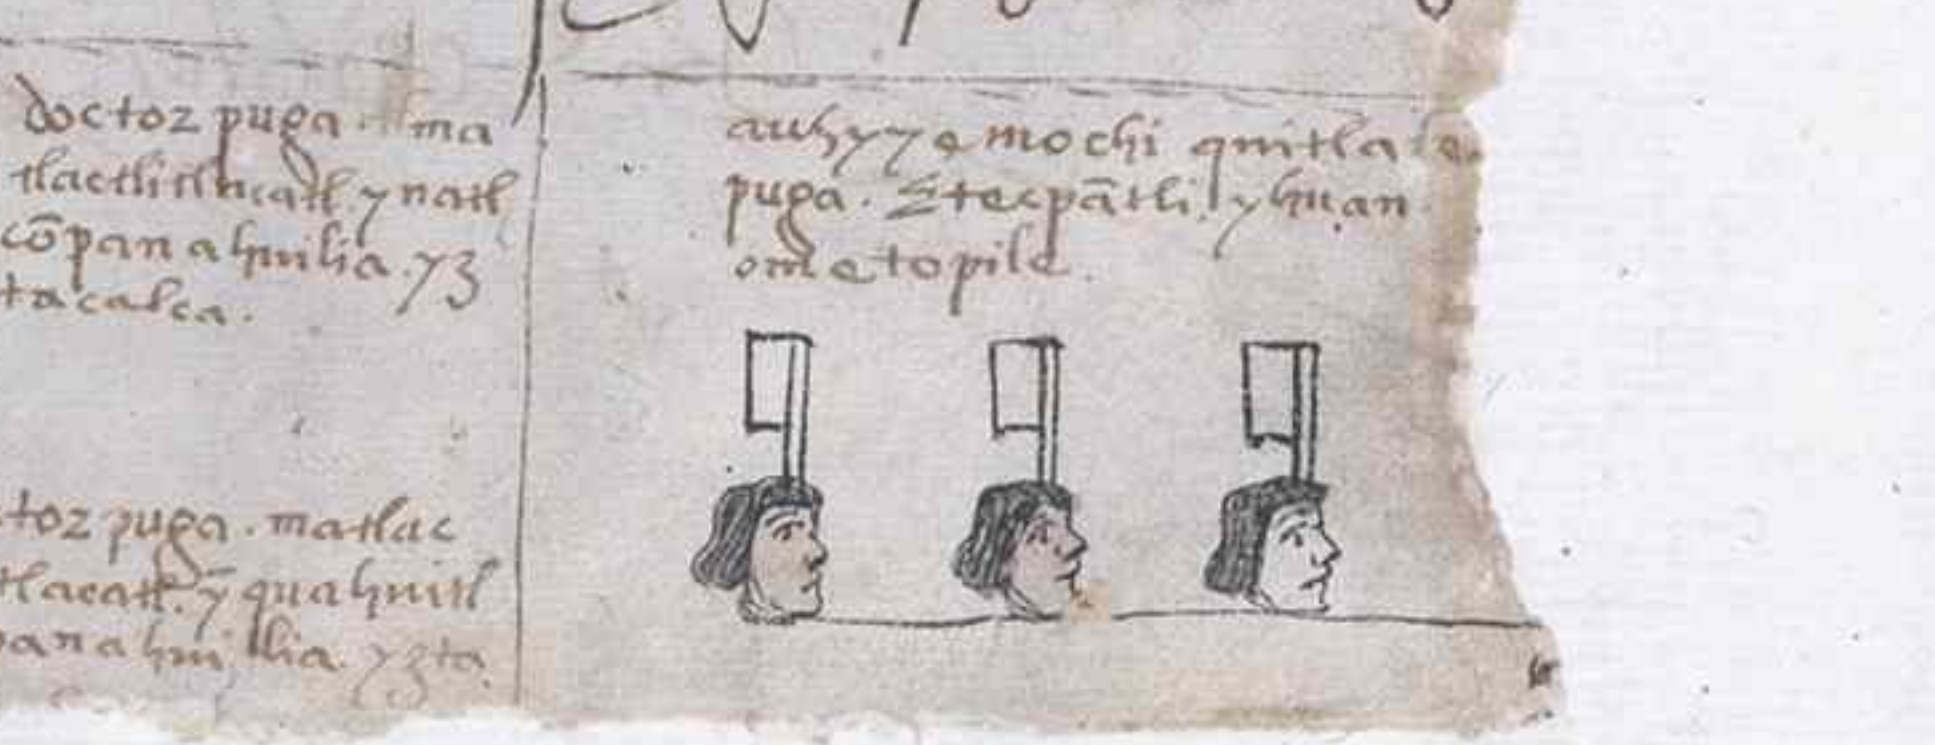 doctor puga ma
tlactlitlacatl ynatl
cōpan ahuilia. yz
tacalca.
toz puga. matlac
tlacatl. ȳ quahuitl
panahuilia yzta
auh yye mochi quitla
puga. Etecpātli. yhuan
ometopile.